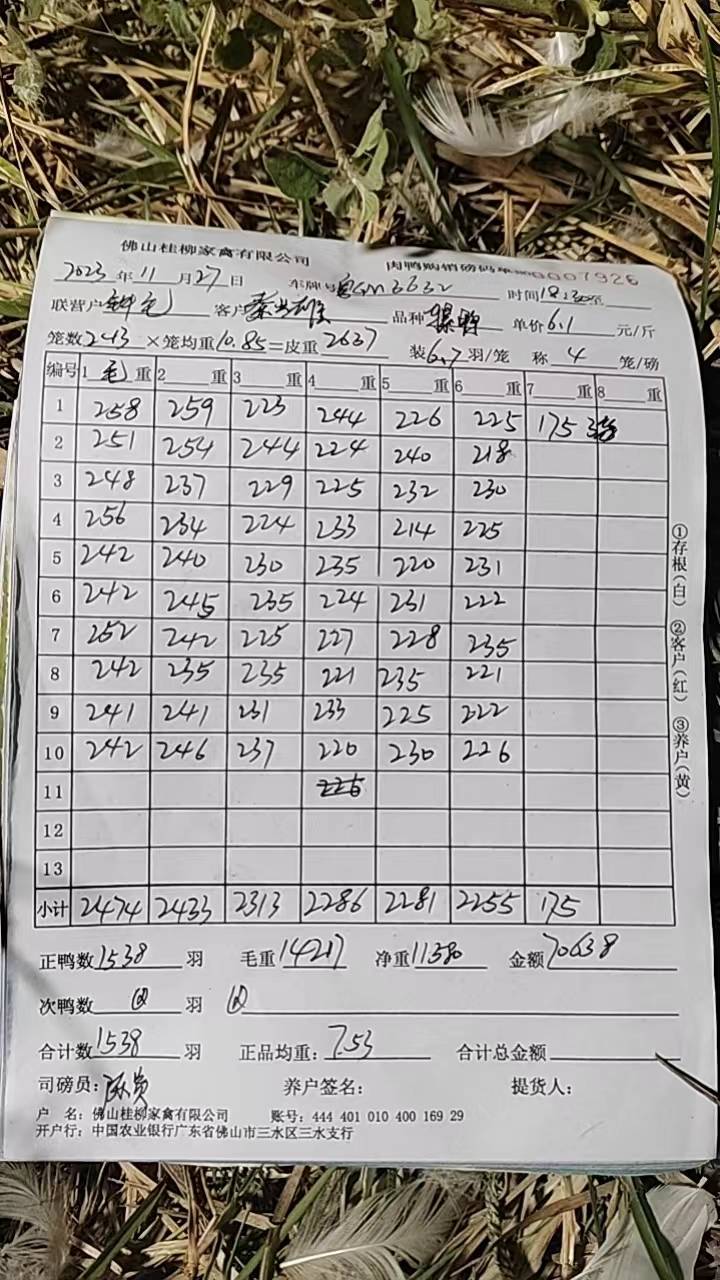 佛山桂柳家禽有限公司 肉鸭购销磅码单 0007926
2023 年 11 月 27 日 车牌号 3632 时间 18:30
联营户 客户 品种 单价 6.1 元/斤
笼数 243 ×笼均重 10.85 =皮重 2637 装 6.7 羽/笼 称 4 笼/磅
编号 1 毛 重 2 重 3 重 4 重 5 重 6 重 7 重 8 重
1 258 259 223 244 226 225 175
2 251 254 244 224 240 218
3 248 237 229 225 232 230
4 256 234 224 233 214 225
5 242 240 230 235 220 231
6 242 245 235 224 231 222
7 252 242 225 227 228 235
8 242 235 235 221 235 221
9 241 241 231 233 225 222
10 242 246 237 220 230 226
11
12
13
小计 2474 2433 2313 2286 2281 2255 175
正鸭数 1538 羽 毛重 14217 净重 11580 金额 70638
次鸭数 羽
合计数 1538 羽 正品均重: 7.53 合计总金额
司磅员: 养户签名: 提货人:
户 名: 佛山桂柳家禽有限公司 账号: 444 401 010 400 169 29
开户行: 中国农业银行广东省佛山市三水区三水支行
①存根(白) ②客户(红) ③养户(黄)